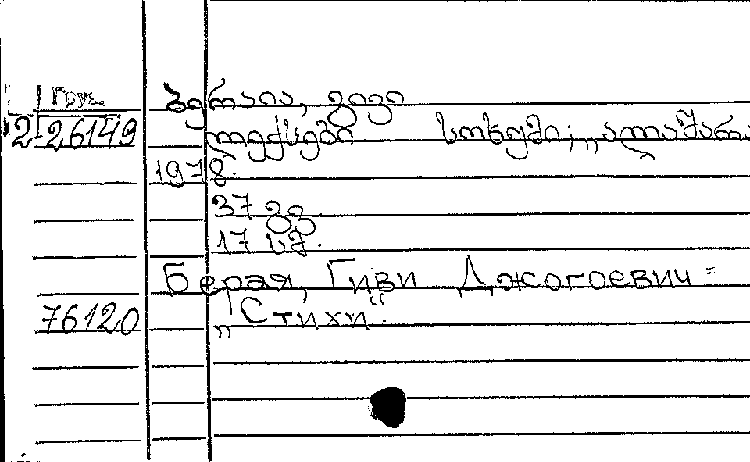 Груз.
ბერაია, გივი
2 26149
ლექსები სოხუმი; „ალაშარა
1978.
37 გვ.
17 კპ.
Берая, Гиви Джогоевич
76120
„Стихи“.